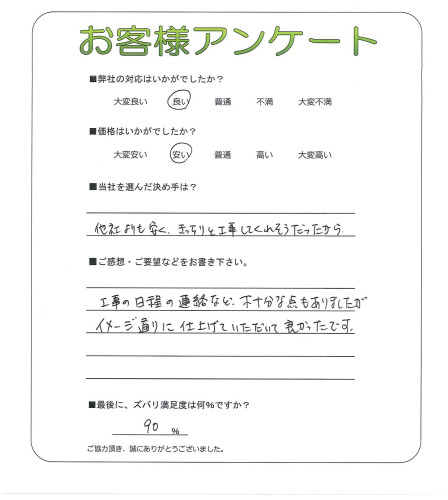 お客様アンケート
■弊社の対応はいかがでしたか?
大変良い 良い 普通 不満 大変不満
■価格はいかがでしたか?
大変安い 安い 普通 高い 大変高い
■当社を選んだ決め手は?
他社よりも安く、きっちりと工事してくれそうだったから。
■ご感想・ご要望などをお書き下さい。
工事の日程の連絡など、不十分な点もありましたが
イメージ通りに仕上げていただいて良かったです。
■最後に、ズバリ満足度は何%ですか?
90 %
ご協力頂き、誠にありがとうございました。